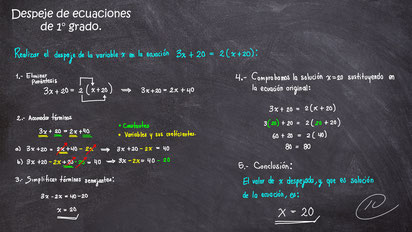 Despeje de ecuaciones
de 1° grado.
Realizar el despeje de la variable x en la ecuación 3x + 20 = 2(x+20):
1.- Eliminar
Paréntesis
3x + 20 = 2 (x + 20) ⟹ 3x + 20 = 2x + 40
2.- Acomodar términos
3x + 20 = 2x + 40
• Constantes
• Variables y sus coeficientes.
a) 3x + 20 = 2x + 40 - 2x ⟹ 3x + 20 - 2x = 40
b) 3x + 20 - 2x = 40 - 20 ⟹ 3x - 2x = 40 - 20
3.- Simplificar términos semejantes:
3x - 2x = 40 - 20
x = 20
4.- Comprobamos la solución x = 20 sustituyendo en
la ecuación original:
3x + 20 = 2 (x + 20)
3(20) + 20 = 2 (20 + 20)
60 + 20 = 2 (40)
80 = 80
5.- Conclusión:
El valor de x despejada, y que es solución
de la ecuación, es:
x = 20